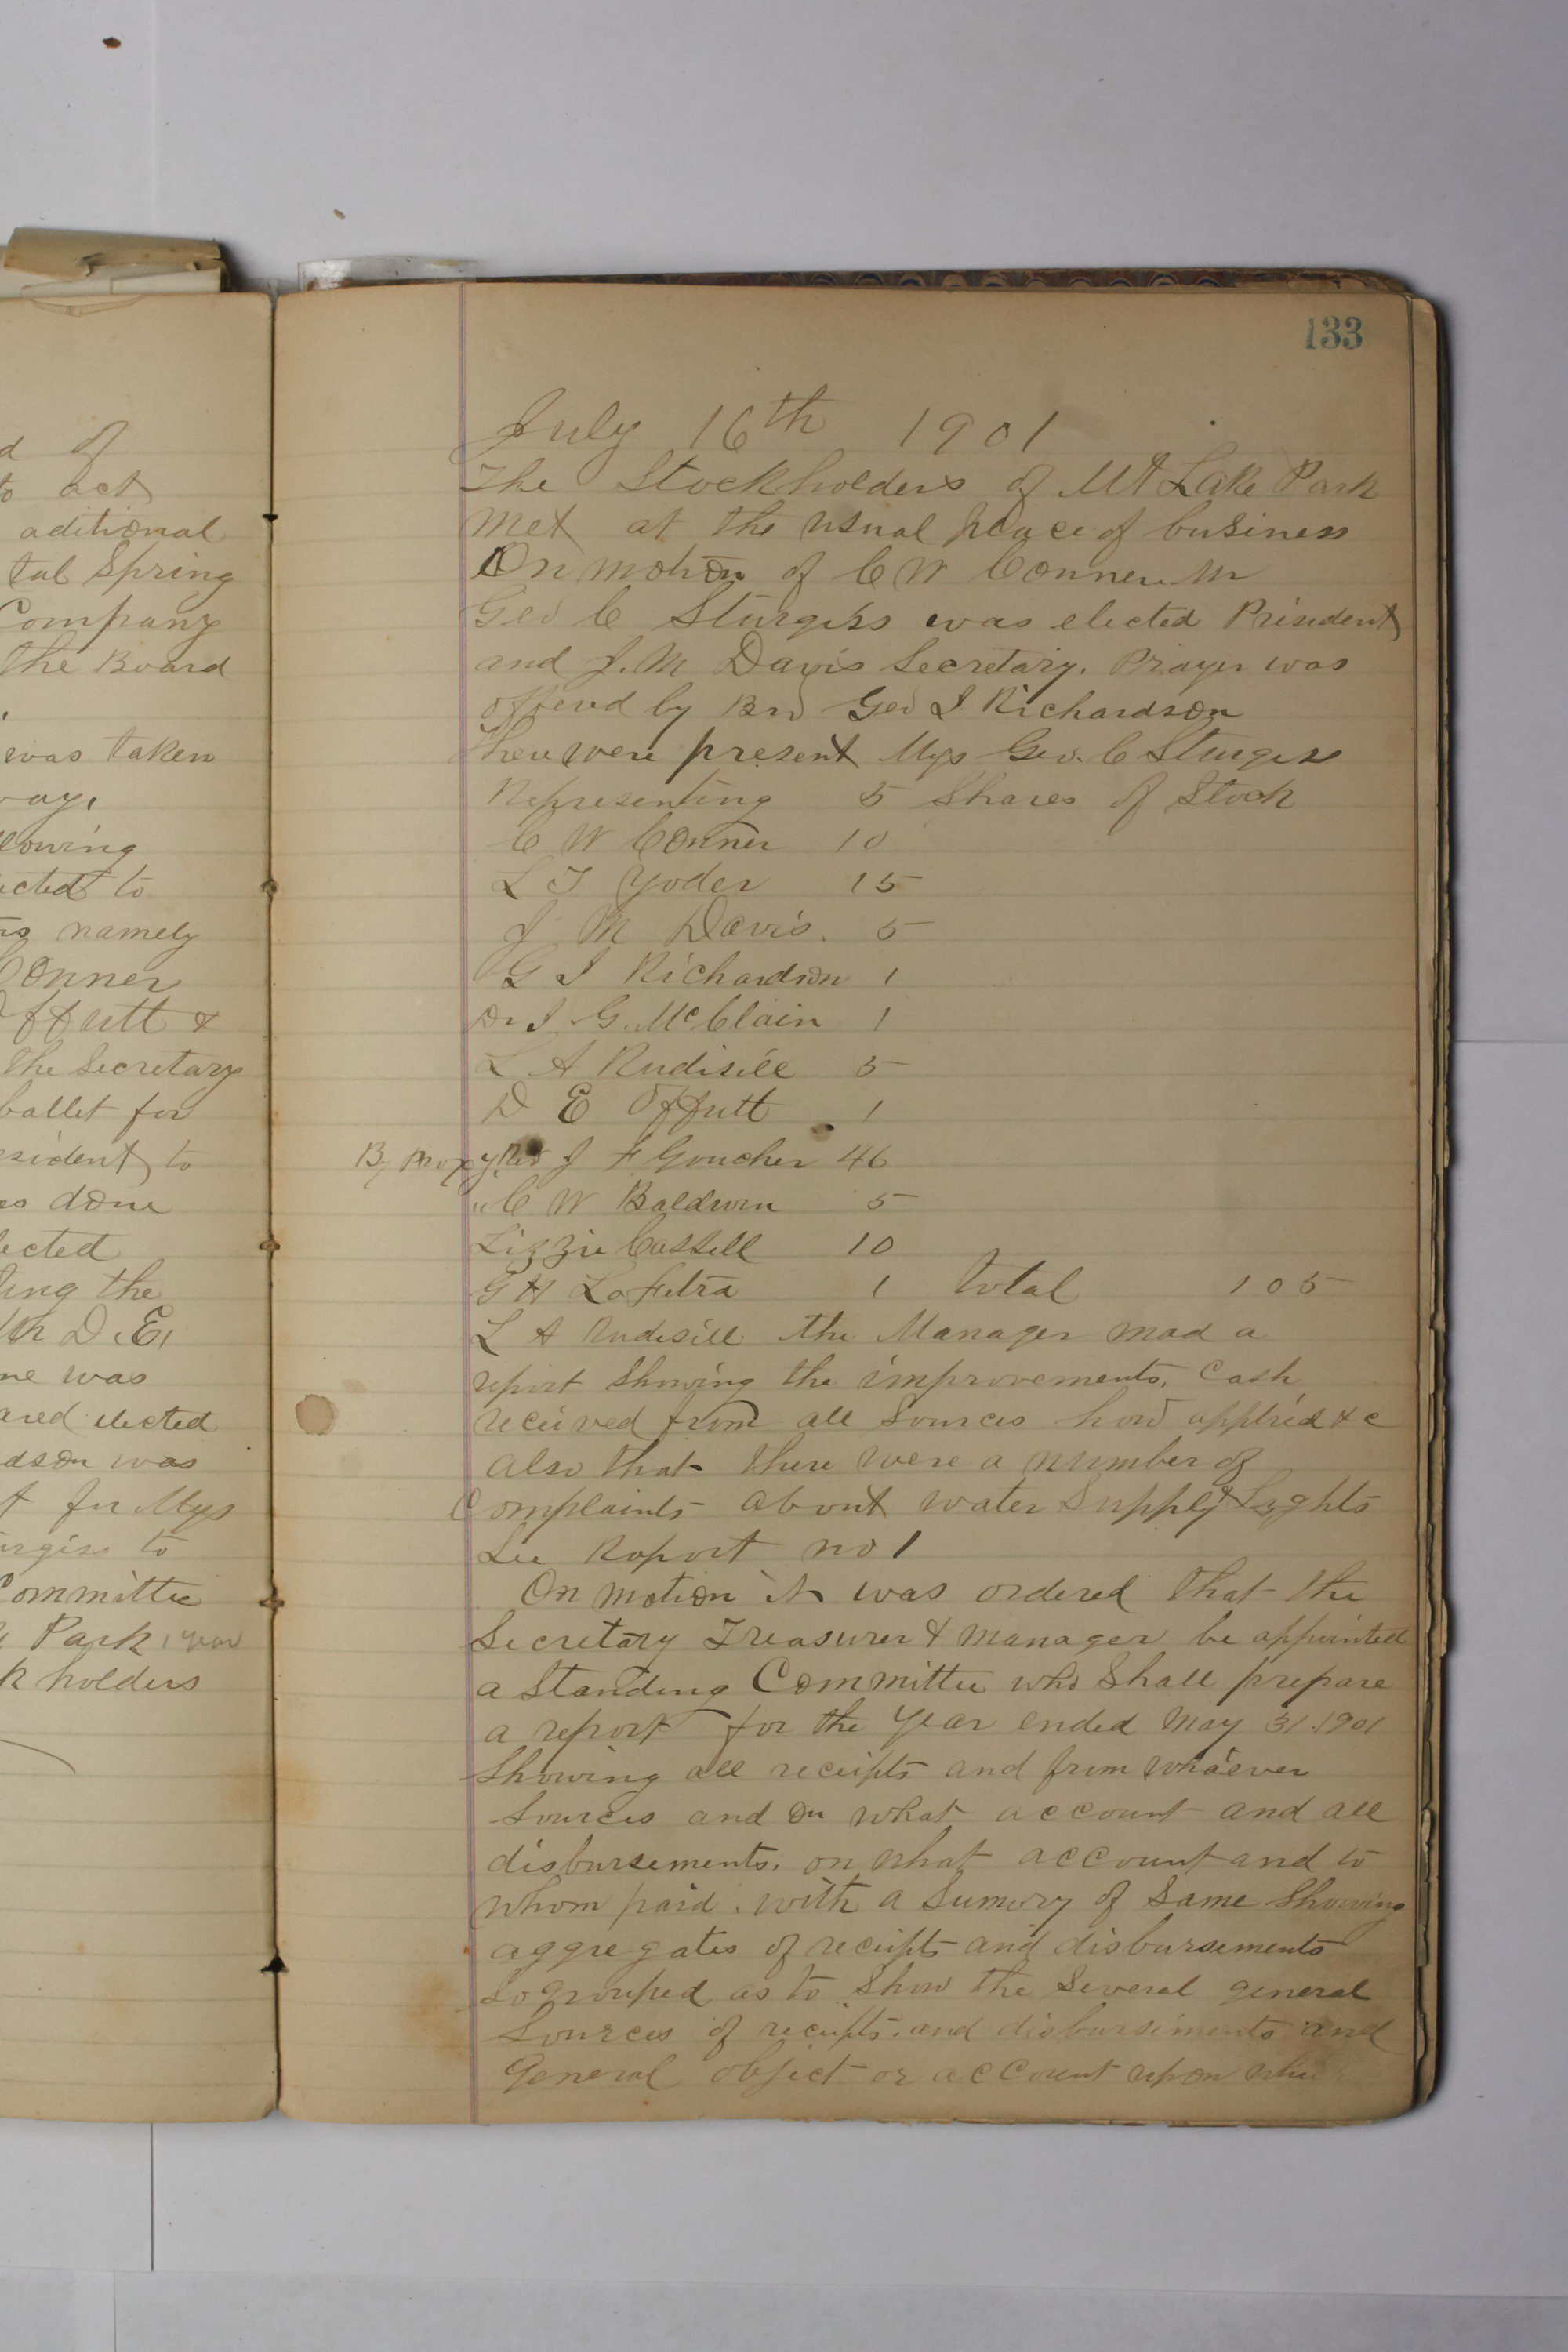 d of
to act
aditional
tal Spring
Company
the Board
was taken
way,
lowing
ected to
rs namely
Conner
Offutt &
the Secretary
ballet for
esident to
as done
lected
ting the
Mr D. E,
ne was
ared elected
dson was
t for Mys
urgiss to
Committee
e Park, year
k holders
133
July 16th 1901
The Stockholders of Mt Lake Park
Met at the usual place of business
On motion of C W Conner Mr
Geo C Sturgiss was elected President
and J. M Davis Secretary. Prayer was
offered by Bro Geo I Richardson
There were present Mys Geo. C Sturgiss
Representing 5 Shares of Stock
C W Conner 10
L T Yoder 15
J M Davis. 5
G I Richardson 1
Dr I G. McClain 1
L A Rudisill 5
D E Offutt 1
By Proxy Rev J F Goucher 46
" C W Baldwin 5
Lizzie Cassell 10
G H LaFetra 1 total 105
L A Rudisill the Manager mad a
report Showing the improvements, Cash
received from all sources how applied &c
also that there were a number of
Complaints about water Supply & Lights
See Roport no 1
On motion it was ordered that the
Secretary Treasurer & manager be appointed
a Standing Committee who Shall prepare
a report for the year ended May 31. 1901
Showing all receipts and from whatever
Sources and on what account and all
disbursements. on what account and to
whom paid. with a Sumery of Same Showing
aggregates of receipts and disbursements
So grouped as to Show the Several general
Sources of receipts. and disbursements and
General object or account upon whi